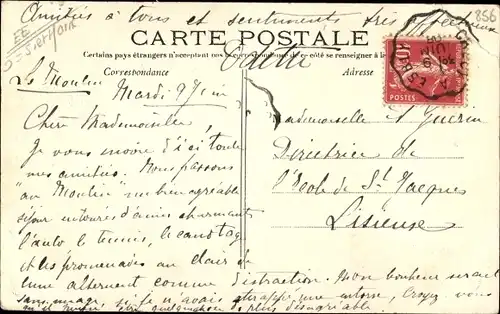 Amitiés à tous et sentiments très affectueux
856
CARTE POSTALE
Certains pays étrangers n'acceptent pas
de ce côté se renseigner à la
Odette
Correspondance
Adresse
Le Moulin
Mardi 9 Juin
10c
POSTES
Chère Mademoiselle,
Je vous envoie d'ici toute
mes amitiés. Nous passons
"au Moulin" un bien agréable
séjour entourés d'amis charmants
l'auto le tennis, le canotage
et les promenades au clair de
lune alternent comme distraction. Mon bonheur serait
sans nuage, si je n'avais attrapé une entorse, croyez vous
plus désagréable
Mademoiselle A Guérin
Directrice de
l'école de St Jacques
Lisieux